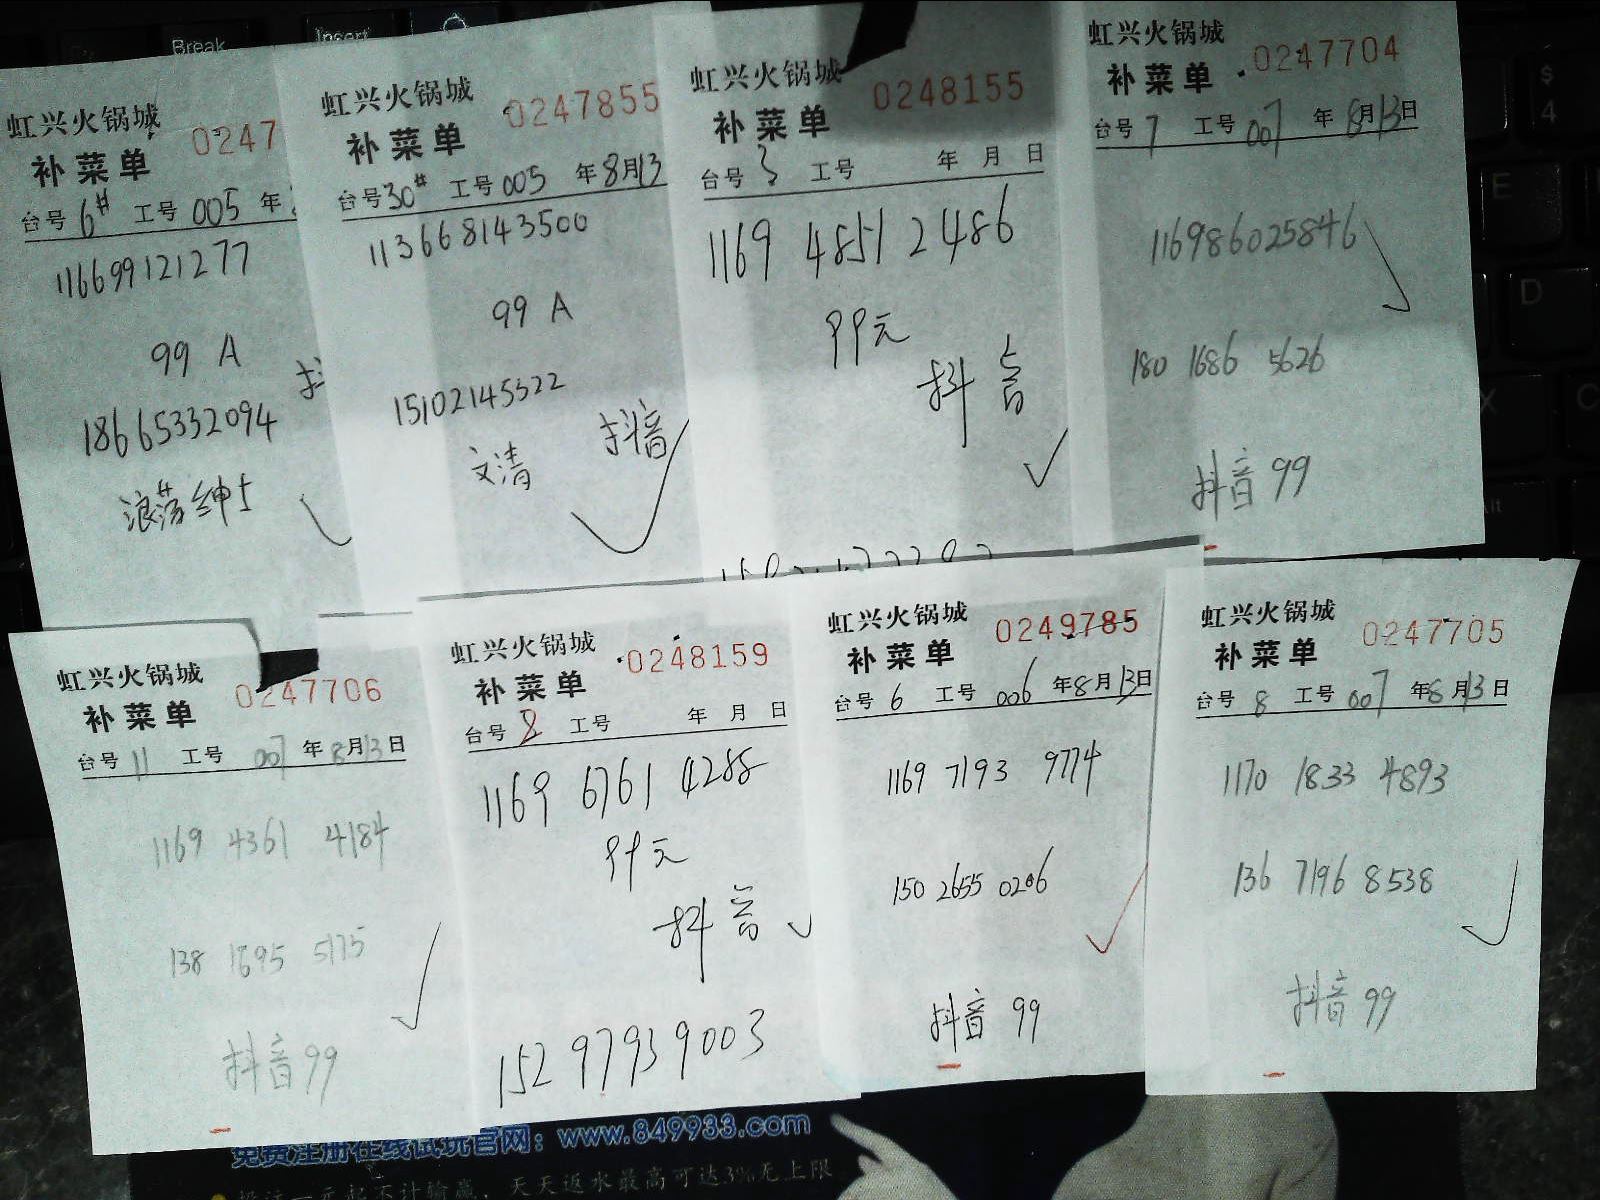 Break
Insert
虹兴火锅城
补菜单 0247
台号 6# 工号 005 年
116699121277
99 A
18665332094
浪荡绅士
虹兴火锅城
补菜单 0247855
台号 30# 工号 005 年 8月13
113668143500
99 A
15102145522
文清 抖音
虹兴火锅城
补菜单 0248155
台号 3 工号 年 月 日
1169 4851 2486
99元
抖音
虹兴火锅城
补菜单 0247704
台号 7 工号 007 年 8月13日
116986025846
180 1686 5626
抖音 99
虹兴火锅城
补菜单 0247706
台号 11 工号 007 年 8月13日
1169 4361 4184
138 1695 5175
抖音 99
虹兴火锅城
补菜单 0248159
台号 2 工号 年 月 日
1169 6761 4288
99元
抖音
152 9793 9003
虹兴火锅城
补菜单 0249785
台号 6 工号 006 年 8月13日
1169 7193 9774
150 2655 0206
抖音 99
虹兴火锅城
补菜单 0247705
台号 8 工号 007 年 8月13日
1170 1833 4893
136 7196 8538
抖音 99
$
4
E
D
X
C
免费注册在线试玩官网：www.849933.com
投注一元起不计输赢，天天返水最高可达3%无上限